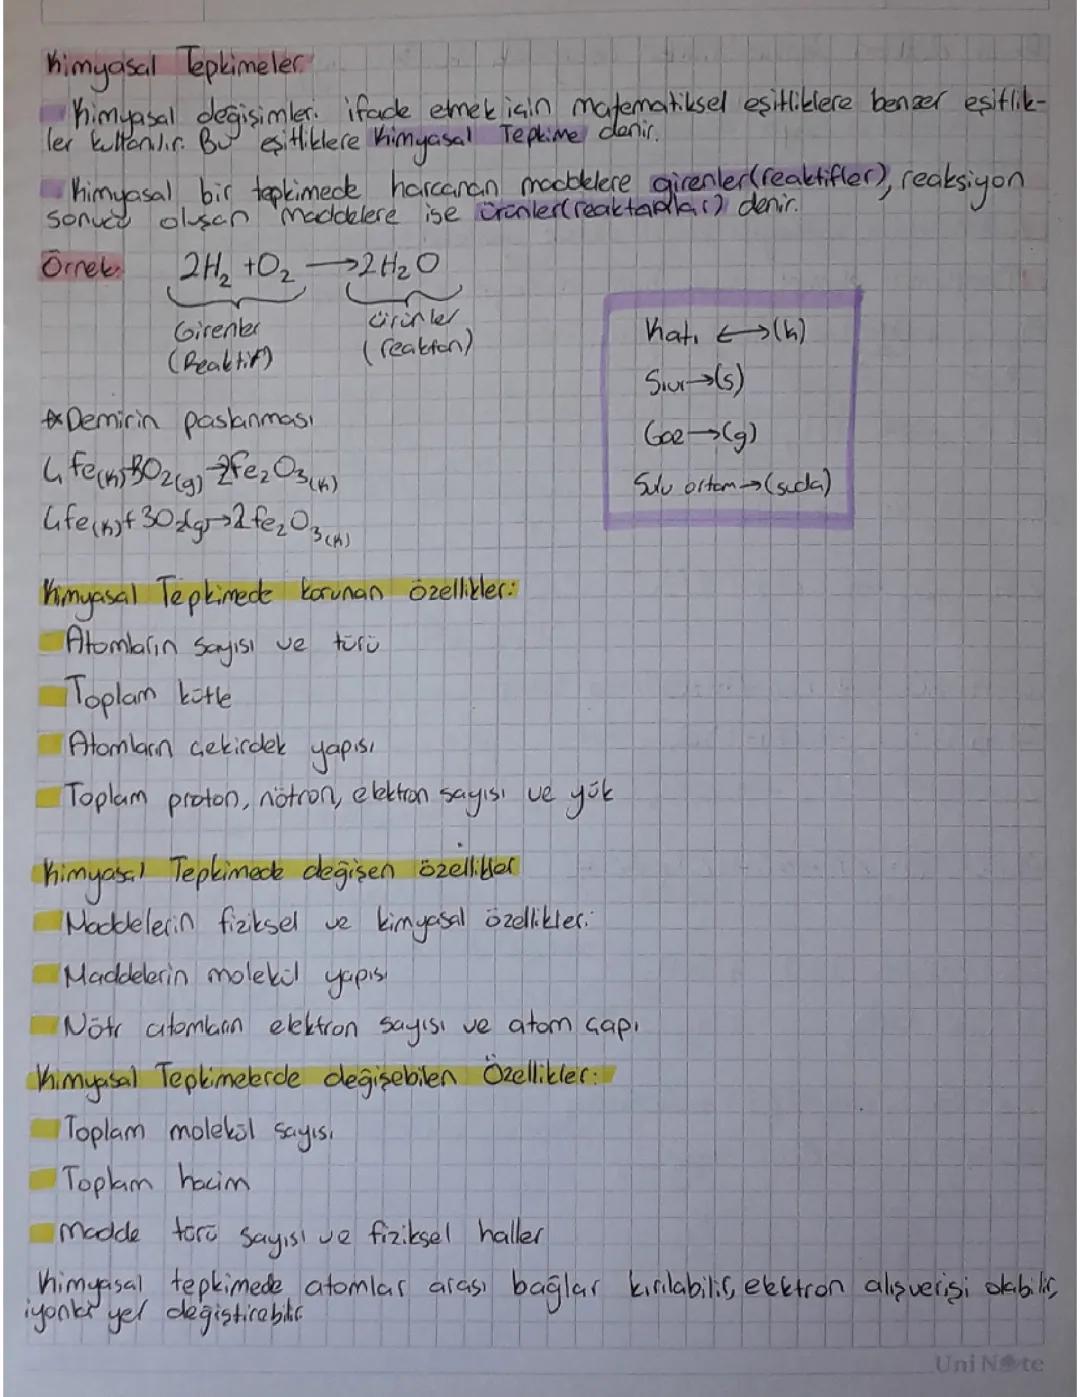 Kimyasal Tepkimeler
Kimyasal değişimleri ifade etmek için matematiksel eşitliklere benzer eşitlik-
ler kullanılır. Bu eşitliklere Kimyasal Tepkime denir.
Kimyasal bir tepkimede harcanan maddelere girenler(reaktifler), reaksiyon
sonucu oluşan maddelere ise ürünler(reaktanlar) denir.
Örnek: 2H₂ + O₂ → 2H₂O
Girenler ürünler
(Reaktif) (reaktan)
Katı ↔ (k)
Sıvı → (s)
Gaz → (g)
Sulu ortam → (suda)
*Demirin paslanması
4fe(k)+3O₂(g)→2fe₂O₃(k)
4fe(k)+3O₂(g)→2fe₂O₃(k)
Kimyasal Tepkimede korunan özellikler:
Atomların sayısı ve türü
Toplam kütle
Atomların çekirdek yapısı
Toplam proton, nötron, elektron sayısı ve yük
Kimyasal Tepkimede değişen özellikler
Maddelerin fiziksel ve kimyasal özellikleri
Maddelerin molekül yapısı
Nötr atomların elektron sayısı ve atom çapı
Kimyasal Tepkimelerde değişebilen Özellikler:
Toplam molekül sayısı
Toplam hacim
Madde türü sayısı ve fiziksel haller
Kimyasal tepkimede atomlar arası bağlar kırılabilir, elektron alışverişi olabilir,
iyonlar yer değiştirebilir.
Uni Note